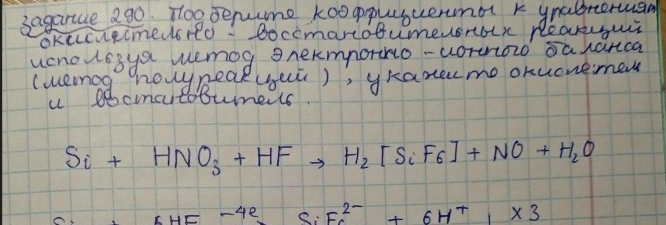 Задание 290. Подберите коэффициенты к уравнениям
окислительно - восстановительных реакций
используя метод электронно-ионного баланса
(метод полуреакций), укажите окислетем
и востановитель.
Si + HNO₃ + HF → H₂[SiF₆] + NO + H₂O
Si + 6HF -4e SiF₆²⁻ + 6H⁺ | ×3